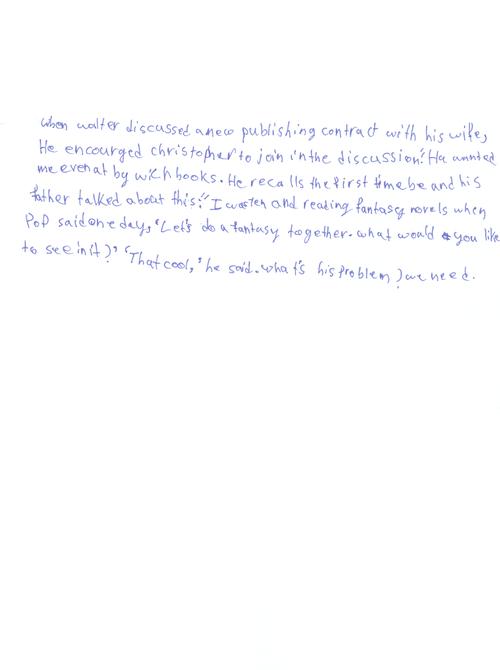 when walter discussed a new publishing contract with his wife,
He encourged christopher to join in the discussion." He wanted
me even at by with books. He recalls the first time be and his
father talked about this." I was ten and reading fantasy novels when
Pop said one day, "Let's do a fantasy together. what would you like
to see in it?" "That cool," he said. what's his problem? we need.